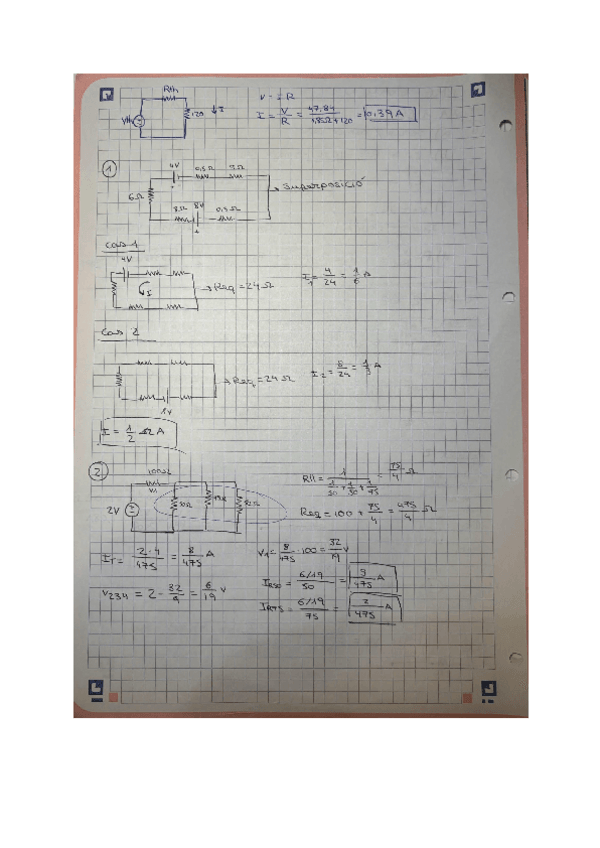 Rth
Vth
120
I
V = I·R
I = V/R = 47.84/(1.85Ω+120) = 0.39A
1
4V
0.5Ω
6Ω
8Ω
8V
0.5Ω
→ Superposició
Cas 1
4V
I
→ Req = 24Ω
I₁ = 4/24 = 1/6 A
Cas 2
→ Req = 24Ω
I₂ = 8/24 = 1/3 A
2
100Ω
V₁
2V
50Ω
RII = 1/(1/50 + 1/50 + 1/75) = 75/4 Ω
Req = 100 + 75/4 = 475/4 Ω
I_T = 2·4/475 = 8/475 A
V₁ = 8/475 · 100 = 32/19 V
V₂₃₄ = 2 - 32/9 = 6/19 V
I_R50 = (6/19)/50 = 3/475 A
I_R75 = (6/19)/75 = 2/475 A